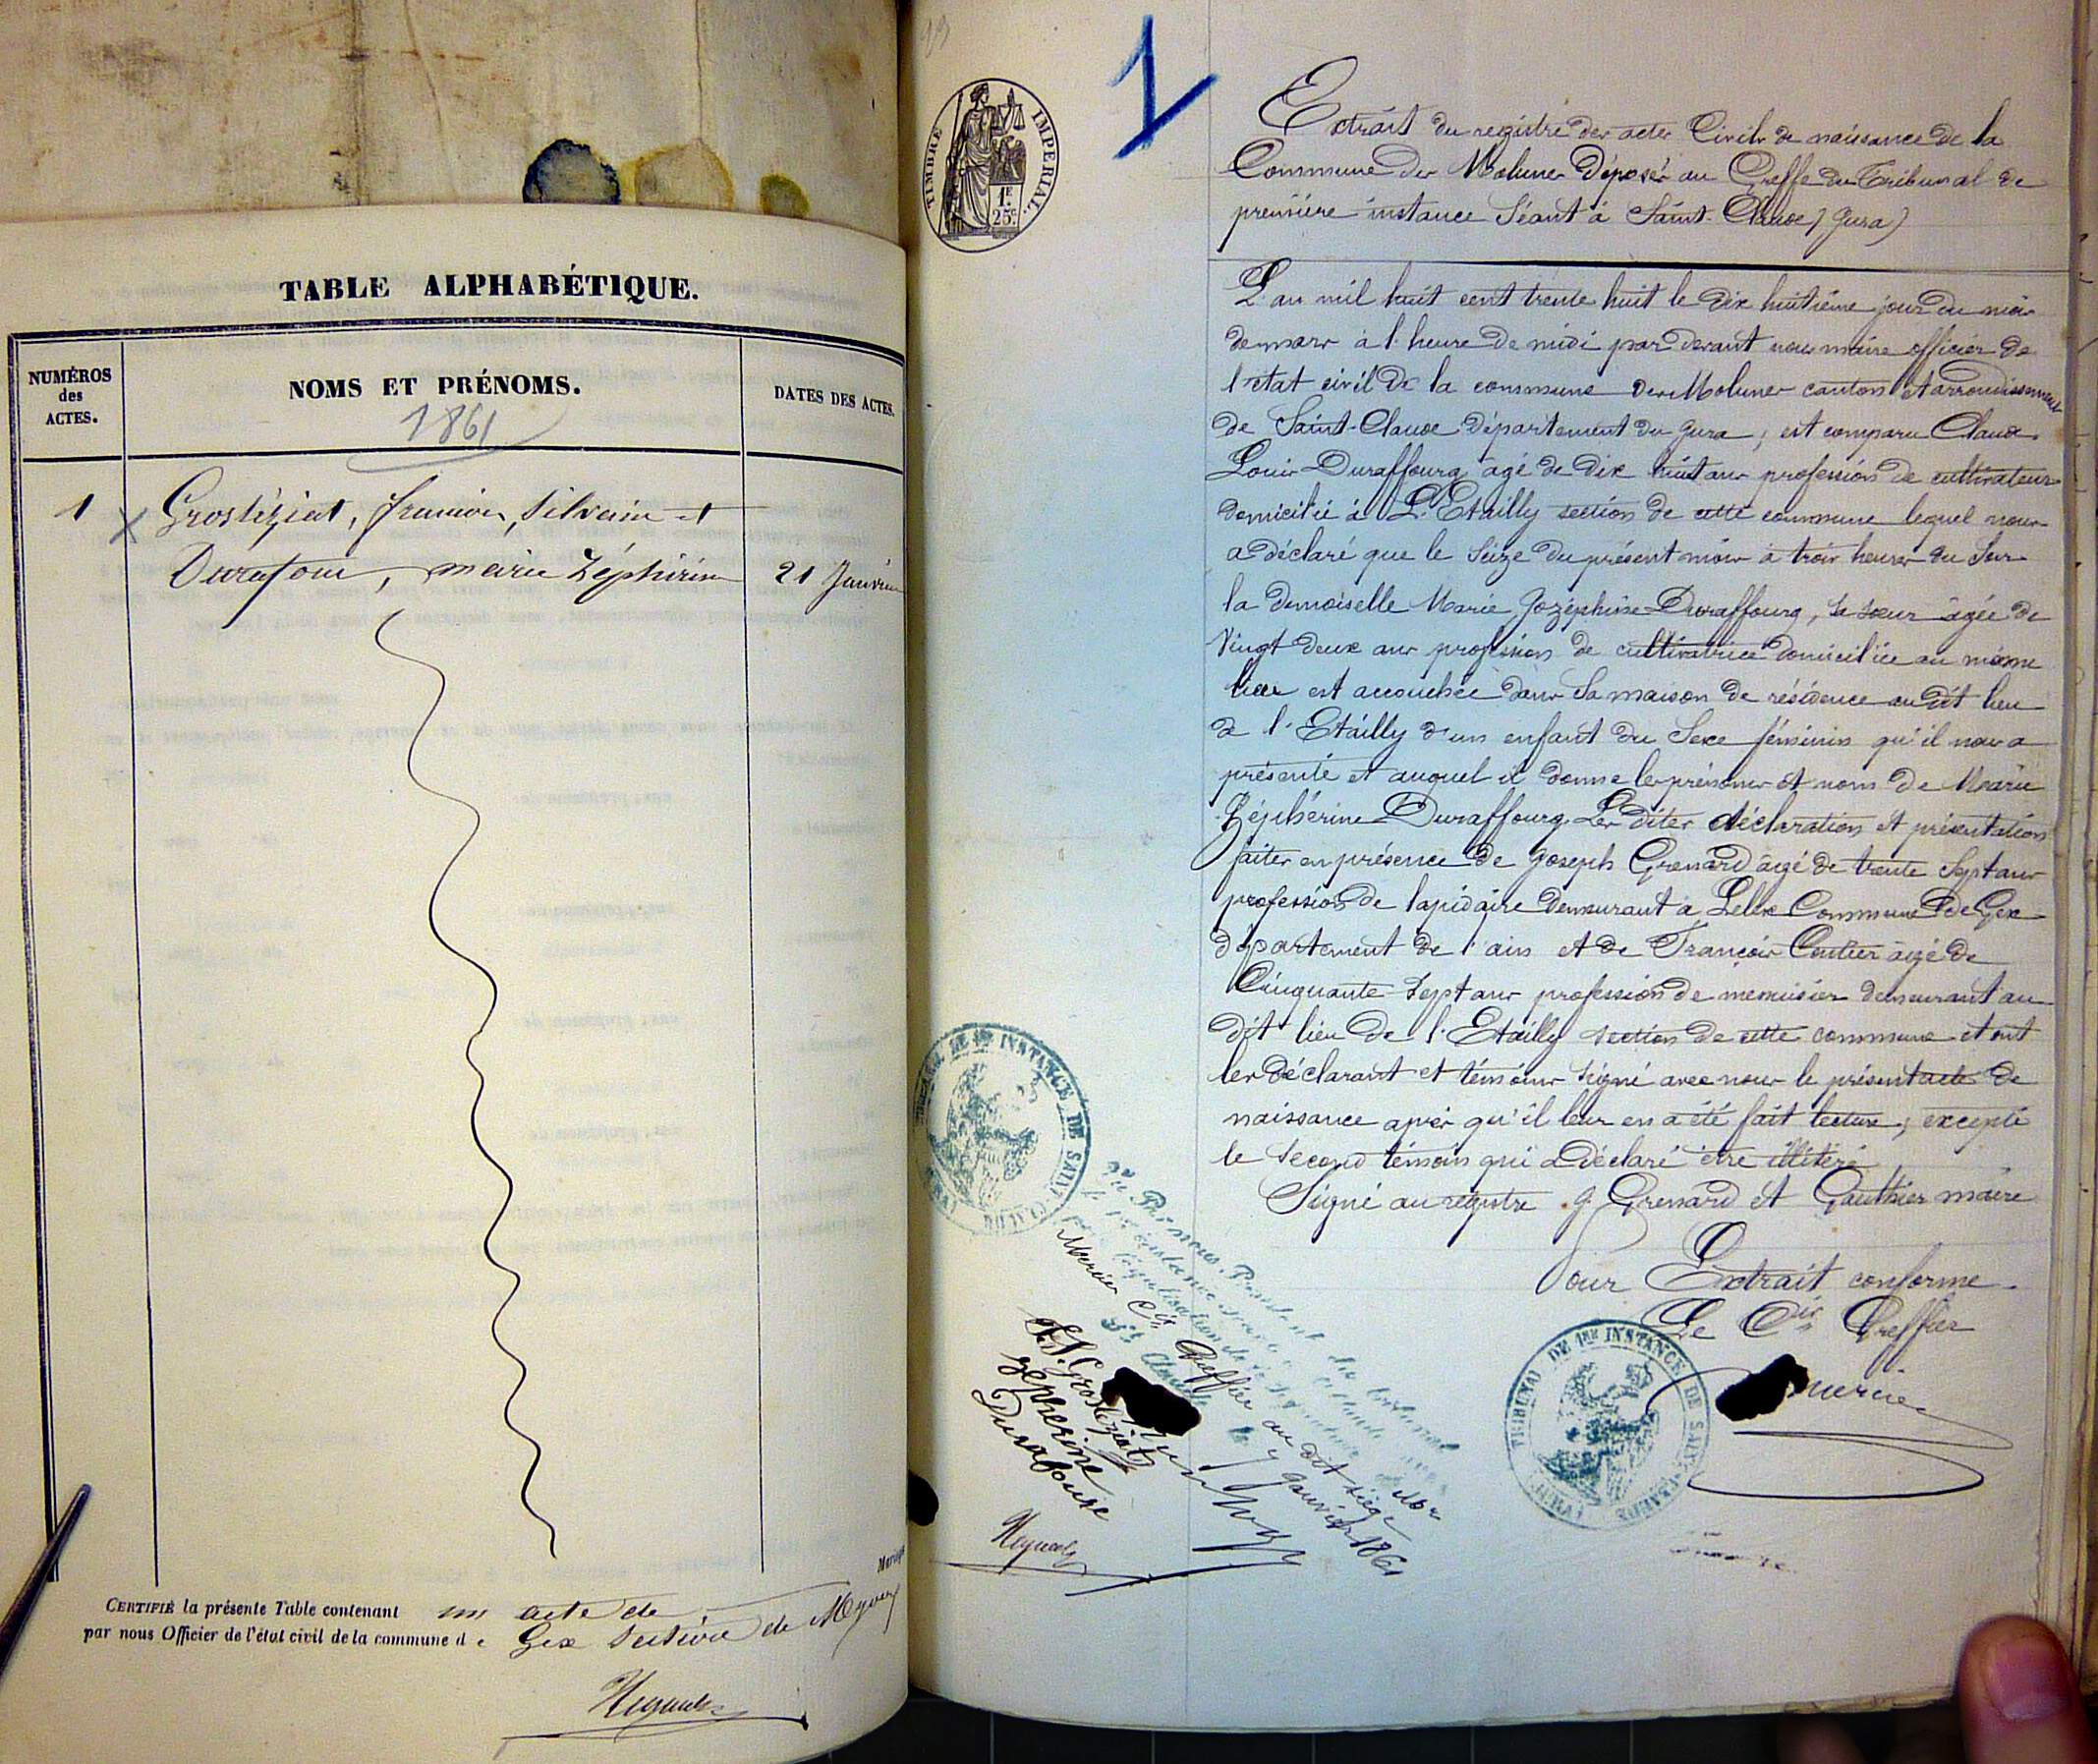 TABLE ALPHABÉTIQUE.
NUMÉROS
des
ACTES.
NOMS ET PRÉNOMS.
DATES DES ACTES.
1861
1
Grosléziat, françois, silvain et
Durafour, marie Zéphirine
21 Janvier
CERTIFIÉ la présente Table contenant un acte de
par nous Officier de l'état civil de la commune de Gex section de
19
1
TIMBRE IMPERIAL.
1F
25c
Extrait du registre des actes Civils de naissance de la
Commune des Molunes déposé au Greffe du Tribunal de
première instance Séant à Saint-Claude (Jura)
L'an mil huit cent trente huit le dix huitième jour du mois
de mars à l'heure de midi par devant nous maire officier de
l'état civil de la commune des Molunes canton et arrondissement
de Saint-Claude département du Jura, est comparu Claude
Louis Duraffourg âgé de dix huit ans profession de cultivateur
domicilié à L'Etailly section de cette commune lequel nous
a déclaré que le Seize du présent mois à trois heures du Soir
la demoiselle Marie Joséphine Duraffourg, sa sœur âgée de
Vingt deux ans profession de cultivatrice domiciliée au même
lieu est accouchée dans Sa maison de résidence au dit lieu
de l'Etailly d'un enfant du Sexe féminin qu'il nous a
présenté et auquel il donne les prénoms et nom de Marie
Zéphérine Duraffourg. Les dites déclaration et présentation
faites en présence de Joseph Grenard âgé de trente Sept ans
profession de lapidaire demeurant à Lelex Commune de Gex
département de l'ain et de François Coutier âgé de
Cinquante-Sept ans profession de menuisier demeurant au
dit lieu de l'Etailly section de cette commune et ont
les déclarant et témoins Signé avec nous le présent acte de
naissance après qu'il leur en a été fait lecture, excepté
le Second témoin qui a déclaré être illitéré
Signé au registre J. Grenard et Gauthier maire
Pour Extrait conforme
Le Cis Greffier
Mercier
TRIBUNAL DE 1ERE INSTANCE DE SAINT-CLAUDE (JURA)
TRIBUNAL DE 1ERE INSTANCE DE SAINT-CLAUDE (JURA)
Vu Par nous, Président du tribunal
de 1re instance séant à St Claude
légalisation de la signature de Mr
Mercier Cis Greffier au dit siège
St Claude le 7 Janvier 1861
f.s. Grosléziat
zepherine
Durafour